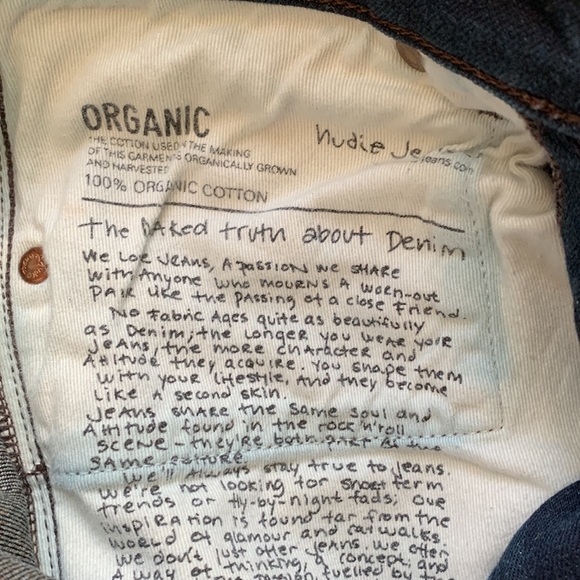 ORGANIC
THE COTTON USED THE MAKING
OF THIS GARMENT ORGANICALLY GROWN
AND HARVESTED
100% ORGANIC COTTON
Nudie Je
jeans.com
the NAKED truth about Denim
We LOVE JEANS, A PASSION WE SHARE
With Anyone who MOURNS A WORN-OUT
PAIR LIKE the PASSING of a close FRIEND.
No FABRIC AGES quite as beautifully
as Denim; the LONGER you WEAR your
JEANS, the MORE CHARACTER and
Attitude they acquire. YOU SHAPE them
WITH YOUR LIFESTYLE, AND they become
LIKE A SECOND SKIN.
JEANS SHARE the SAME soul and
Attitude found in the rock'n'roll
SCENE - they're both PART
SAME CULTURE
We'll always stay true to JEANS.
We're not looking for short term
trends or fly-by-night fads; our
INSPIRATION is found far from the
WORLD of glamour and catwalks.
We don't just offer JEANS, we offer
A WAY of thinking, A concept and
fuelled by the